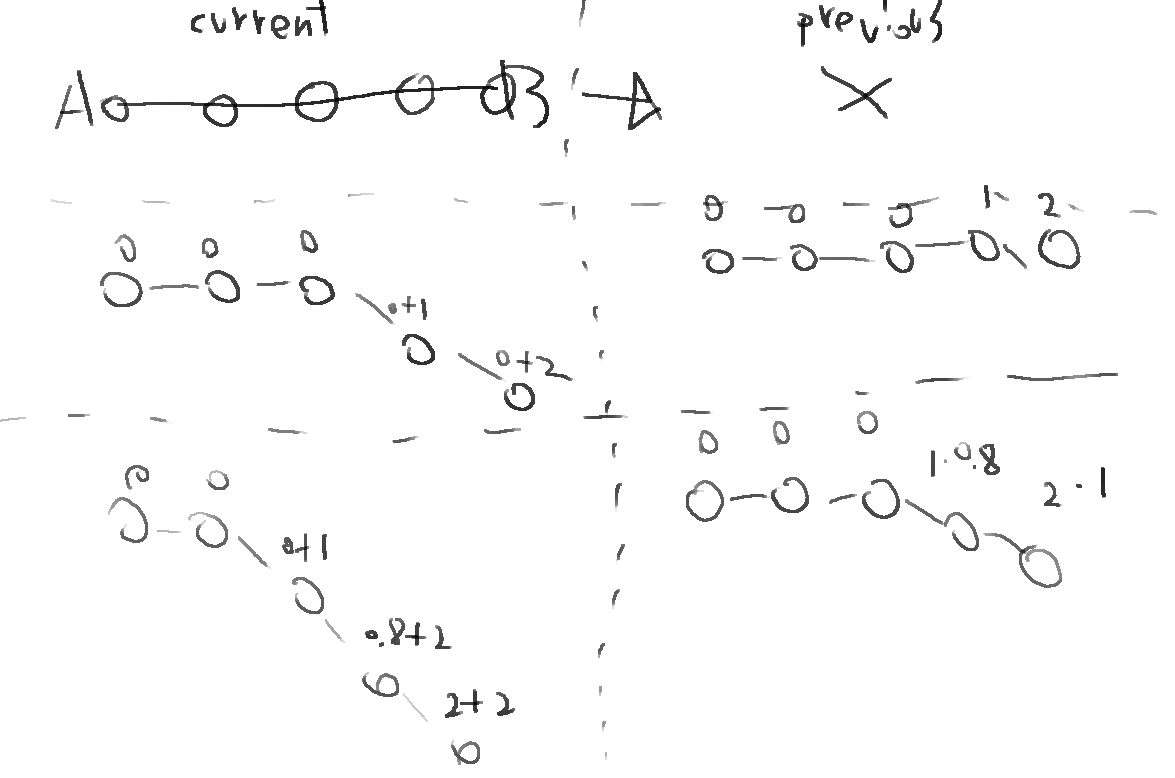 current previous
A B
0 0 0 1 2
0 0 0 0+1 0+2
0 0 0 1·0.8 2·1
0 0 0+1 0.8+2 2+2